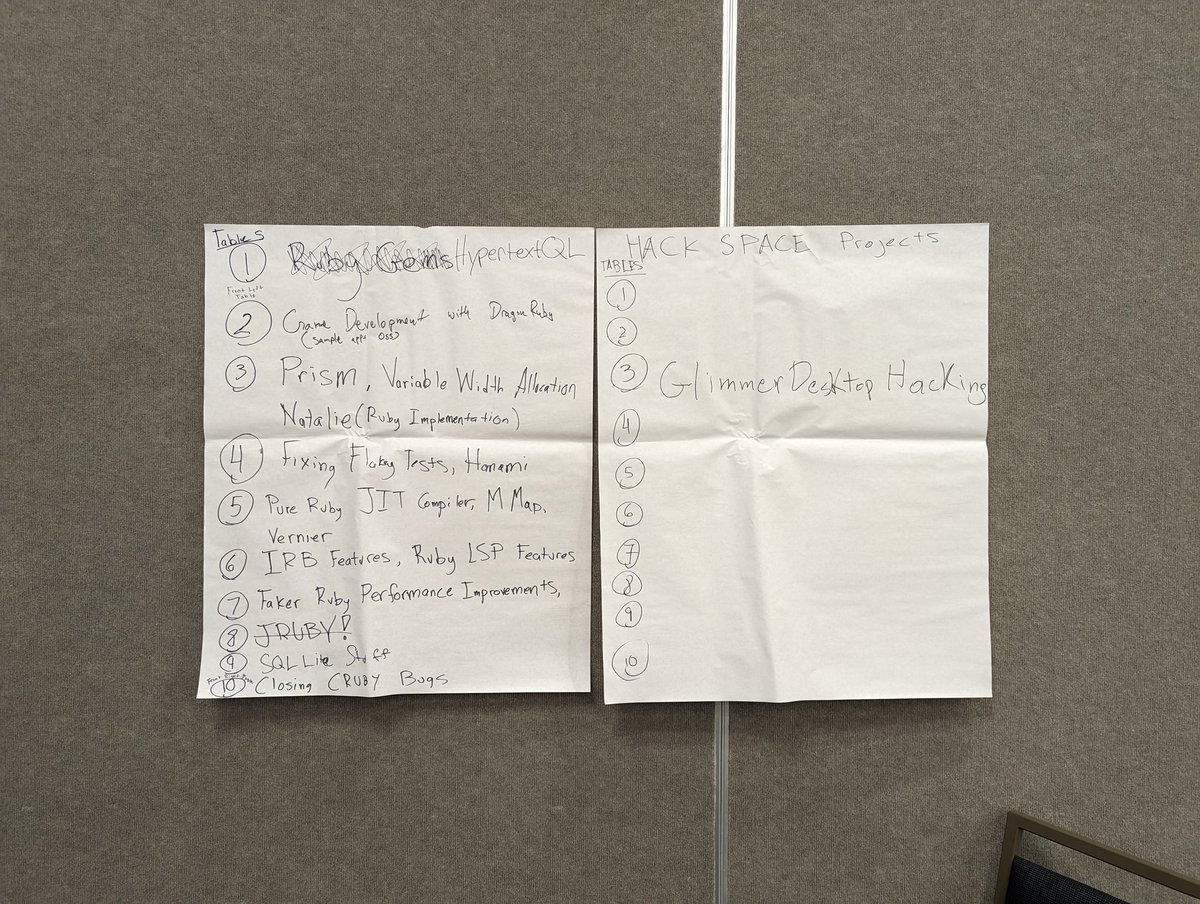 Tables
1 Ruby Gems HypertextQL
Front Left
Table
2 Game Development with DragonRuby
(sample apps OSS)
3 Prism, Variable Width Allocation
Natalie (Ruby Implementation)
4 Fixing Flakey Tests, Hanami
5 Pure Ruby JIT Compiler, MMap,
Vernier
6 IRB Features, Ruby LSP Features
7 Faker Ruby Performance Improvements,
8 JRUBY!
9 SQL Lite Stuff
Front Right
10 Closing CRUBY Bugs
HACK SPACE Projects
TABLES
1
2
3 Glimmer Desktop Hacking
4
5
6
7
8
9
10